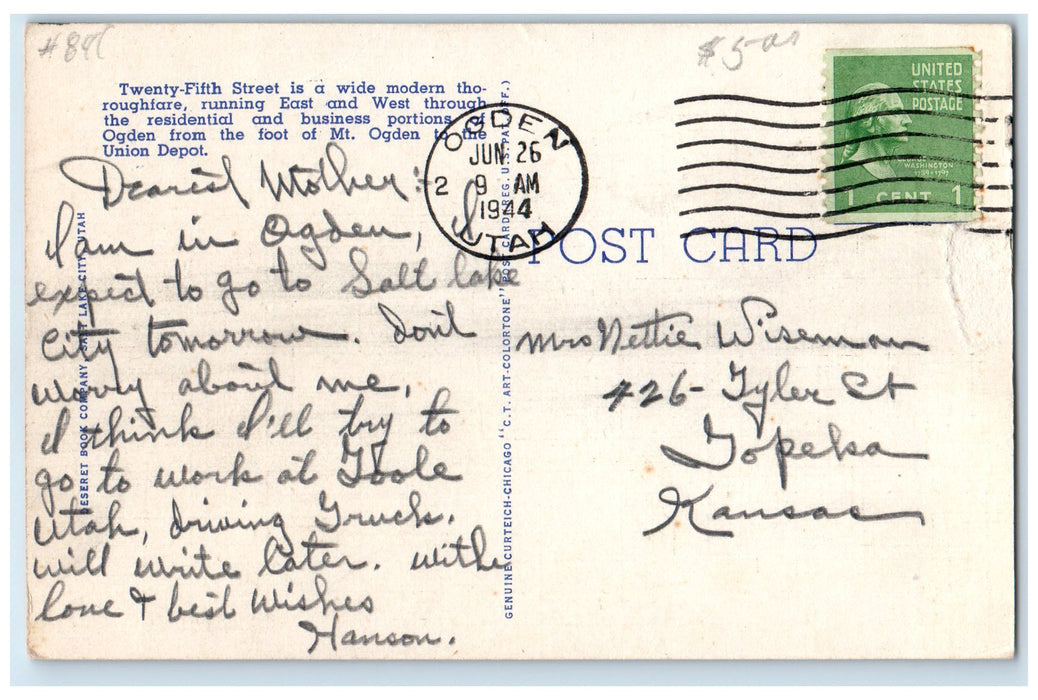 #841
$5-00
Twenty-Fifth Street is a wide modern tho-
roughfare, running East and West through
the residential and business portions of
Ogden from the foot of Mt. Ogden to the
Union Depot.
Dearest Mother:
I am in Ogden, I
expect to go to Salt lake
City tomorrow. don't
worry about me,
I think I'll try to
go to work at Toole
Utah, driving Truck.
will write later. with
love & best Wishes
Hanson.
DESERET BOOK COMPANY, SALT LAKE CITY, UTAH
GENUINE CURTEICH-CHICAGO "C.T. ART-COLORTONE" POST CARD (REG. U.S. PAT. OFF.)
OGDEN
JUN 26
2 9 AM
1944
UTAH
UNITED
STATES
POSTAGE
GEORGE
WASHINGTON
1789-1797
1 CENT 1
POST CARD
Mrs Nettie Wiseman
426- Tyler St
Topeka
Kansas